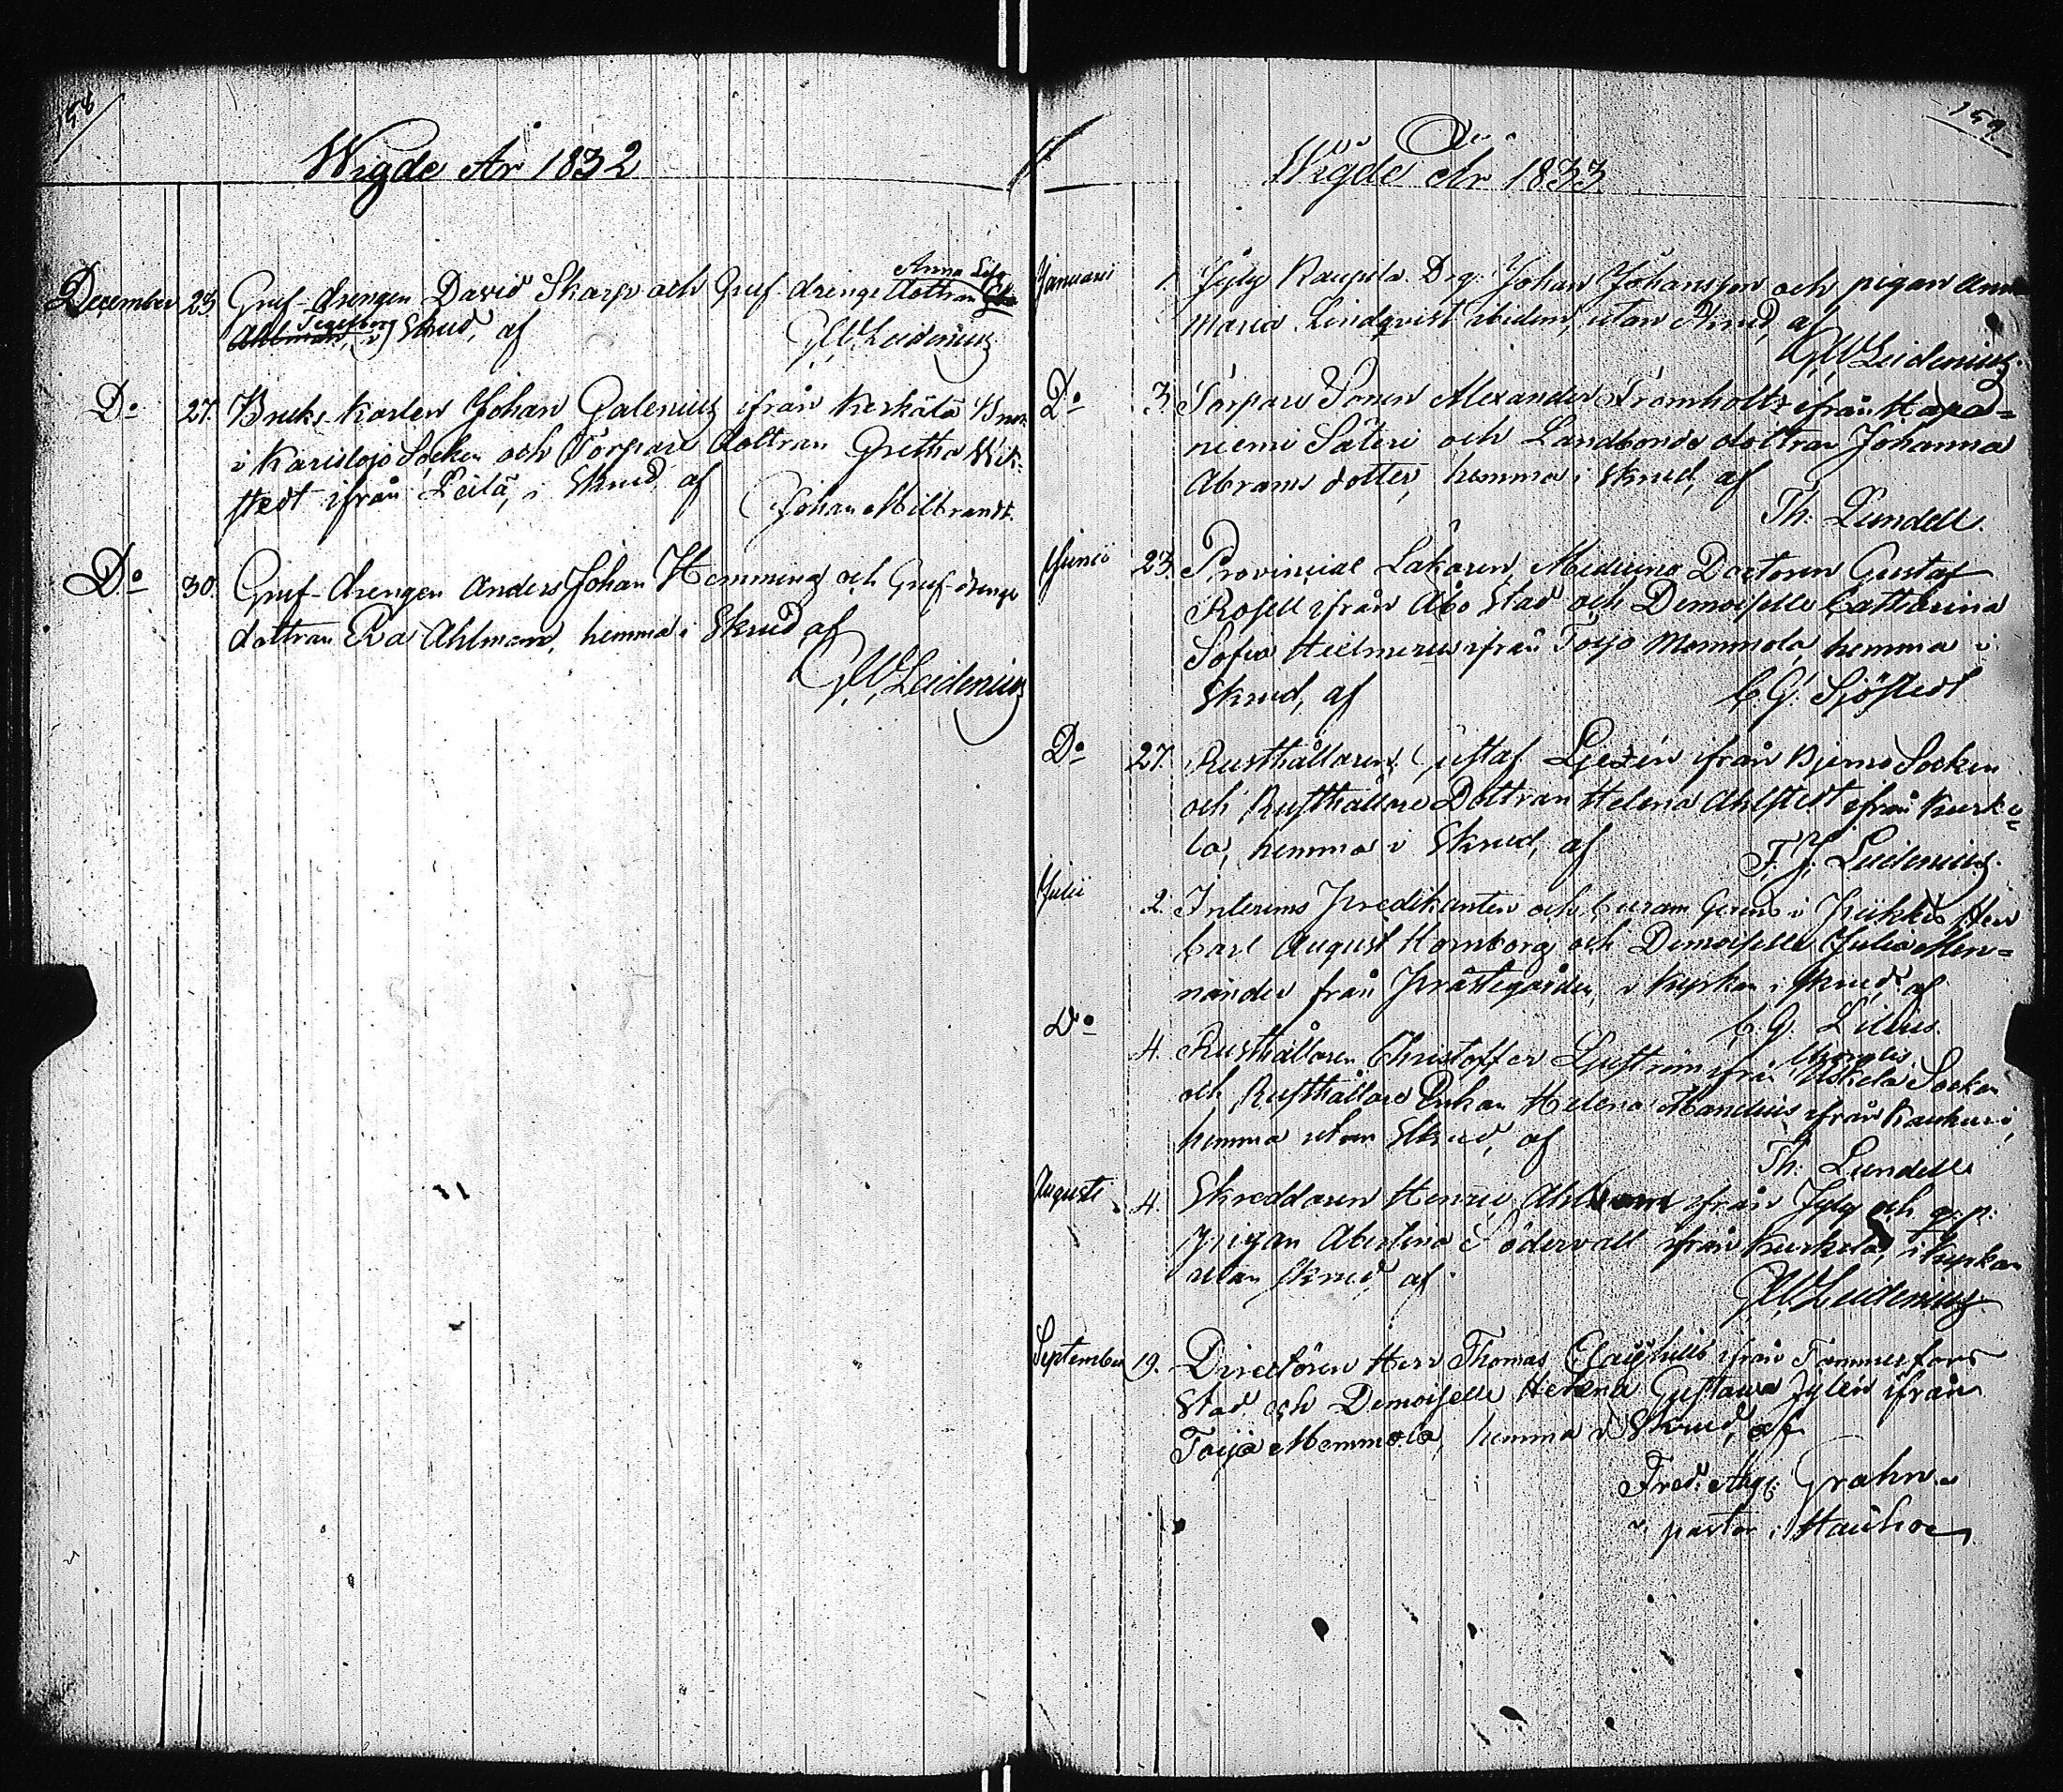 158
Wigde År 1832
December 23. Gruf-drengen David Skarp och Gruf-drengs dottran Anna Lisa
Ahlman, i Skrud, af
GW Leidenius
Do 27. Bruks-Karlen Johan Galenius ifrån Kerkälä Bruk
i Karislojo Socken och Torpare dottran Gretha Wik-
stedt ifrån Leilä, i Skrud, af
Johan Milbrandt.
Do 30. Gruf-drengen Anders Johan Hemming och Gruf-drengs
dottran Eva Ahlman, hemma i Skrud af
GW Leidenius
159
Wigde År 1833.
Januarii 1. Jyly Kaupila Drg. Johan Johansson och pigan Anna
Maria Lindqvist ibidem, utan Skrud, af
GW Leidenius.
Do 3. Torpare Sonen Alexander Tromholtz ifrån Hapa=
niemi Säteri och Landbonde dottran Johanna
Abrams dotter, hemma i Skrud, af
Th: Lundell.
Junii 23. Provincial Läkaren, Medicine Doctoren Gustaf
Rosell ifrån Åbo Stad och Demoiselle Catharina
Sofia Hielmerus ifrån Toijo Mommola, hemma i
Skrud, af
C. G. Sjöstedt
Do 27. Rusthållaren Gustaf Ljezén ifrån Bjerno Socken
och Rusthållare Dottran Helena Ahlstedt ifrån Kurke=
la, hemma i Skrud, af
F. J. Leidenius.
Julii 2. Interims Predikanten och Curam Gerens i Herr
Carl August Hornborg och Demoiselle Julia Men=
nander från Prästegården, i Kyrkan i Skrud af
C. G. Lilius.
Do 4. Rusthållaren Christoffer Ljustrim ifrån Uskela Socken
och Rusthållare Enkan Helena Mandelius ifrån Kaukuri,
hemma utan Skrud, af
Th: Lundell
Augusti 4. Skreddaren Henric ifrån Jyly och q. p.
pigan Abertina Södervall ifrån Kurkela, i Kyrkan
utan Skrud af.
GW Leidenius
September 19. Directören Herr Thomas Clayhills ifrån Tammerfors
Stad och Demoiselle Helena Gustawa Zylén ifrån
Toija Mommola, hemma i Skrud, af
Fred: Aug: Grahn.
v. pastor i Hauho